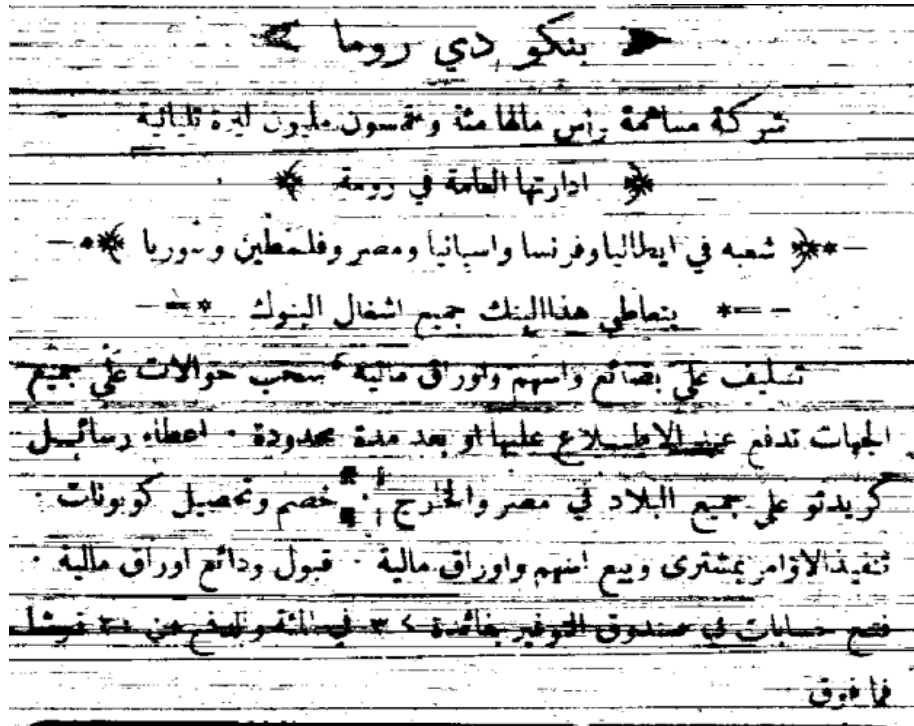 بنكو دي روما
شركة مساهمة رأس مالها مئة وخمسون مليون ليرة تليانية
ادارتها العامة في رومة
شعبه في ايطاليا وفرنسا واسبانيا ومصر وفلسطين وسوريا
يتعاطى هذا البنك جميع اشغال البنوك
تسليف على بضائع واسهم واوراق مالية ، سحب حوالات على جميع
الجهات تدفع عند الاطــلاع عليها او بعد مدة محدودة . اعطاء رسائــل
كريدتو على جميع البلاد في مصر والخارج . خصم وتحصيل كوبونات .
تنفيذ الاوامر بمشترى وبيع اسهم واوراق مالية . قبول ودائع اوراق مالية .
فتح حسابات في صندوق التوفير بفائدة ٣ في المئة وتدفع من ٢٠ غرشا
فما فوق